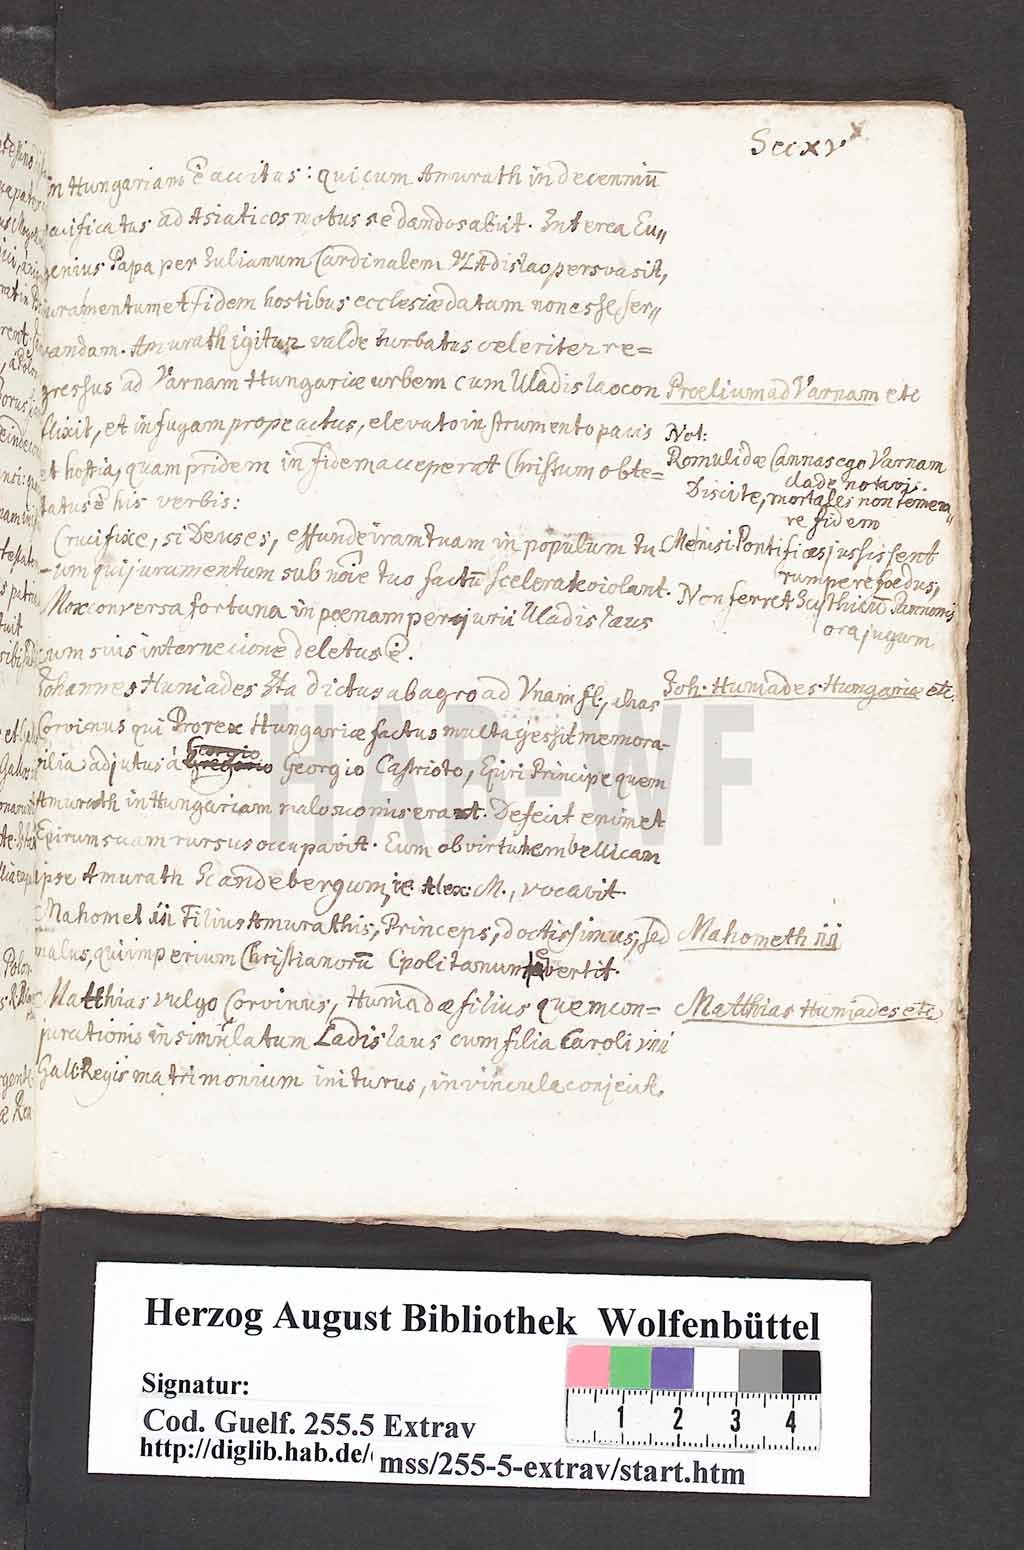 Sec XV
in Hungariam ē accitus: qui cum Amurath in decenniū
pacificatus ad Asiaticos motus sedandos abiit. Interea Eu//
genius Papa per Iulianum Cardinalem Vladislao persvasit,
juramentum et fidem hostibus ecclesiæ datam non esse ser//
vandam. Amurath igitur valde turbatus celeriter re=
gressus ad Varnam Hungariæ urbem cum Uladislao con
Prœlium ad Varnam etc
flixit, et in fugam prope actus, elevato instrumento pacis
Not:
et hostia, quam pridem in fidem acceperat Christum obte=
Romulidæ Cannas ego Varnam
clade notavi.
tatus ē his verbis:
Discite, mortales non temera//
re fidem
Crucifixe, si Deus es, effunde iram tuam in populum tu
Me nisi Pontifices jussissent
rumpere foedus,
-um qui jurumentum sub noīe tuo factū scelerate violant.
Non ferret Scythicū Pannonis
Mox conversa fortuna in poenam perjurii Uladislaus
ora jugum.
cum suis internecione deletus ē.
Johannes Huniades Ita dictus ab agro ad Vnam fl, alias
Joh. Huniades Hungariæ etc.
Corvinus qui Prorex Hungariæ factus multa gessit memora-
bilia adjutus á Gregorio Georgio Georgio Castrioto, Epiri Principe quem
Amurath in Hungariam malo suo miserat. Defecit enim et
Epirum suam rursus occupavit. Eum ob virtutem bellicam
ipse Amurath Scandebergum, ie Alex: M., vocavit.
Mahomet iii Filius Amurathis, Princeps, doctissimus, sed
Mahometh iii
malus, qui imperium Christianorū Cpolitanum evertit.
Matthias vulgo Corvinus, Huniadæ filius quem con=
Matthias Huniades etc
jurationis insimulatum Ladislaus cum filia Caroli viii
Gall: Regis matrimonium initurus, in vincula conjecit.
Polon
HAB-WF
Herzog August Bibliothek Wolfenbüttel
Signatur:
Cod. Guelf. 255.5 Extrav
http://diglib.hab.de/
mss/255-5-extrav/start.htm
1 2 3 4